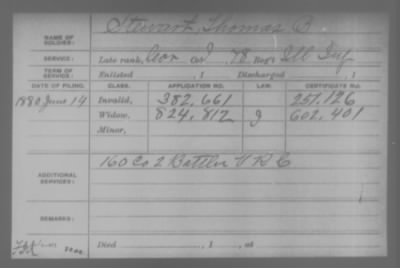 NAME OF SOLDIER: Stewart, Thomas B
SERVICE: Late rank, Cor Co. I, 78 Reg't Ill Inf
TERM OF SERVICE: Enlisted , 1 Discharged , 1
DATE OF FILING. CLASS. APPLICATION NO. LAW. CERTIFICATE NO.
1880 June 14 Invalid, 382,661 251,126
Widow, 824,812 602,401
Minor,
ADDITIONAL SERVICES: 160 Co 2 Battln V R C
REMARKS:
Died , 1 , at